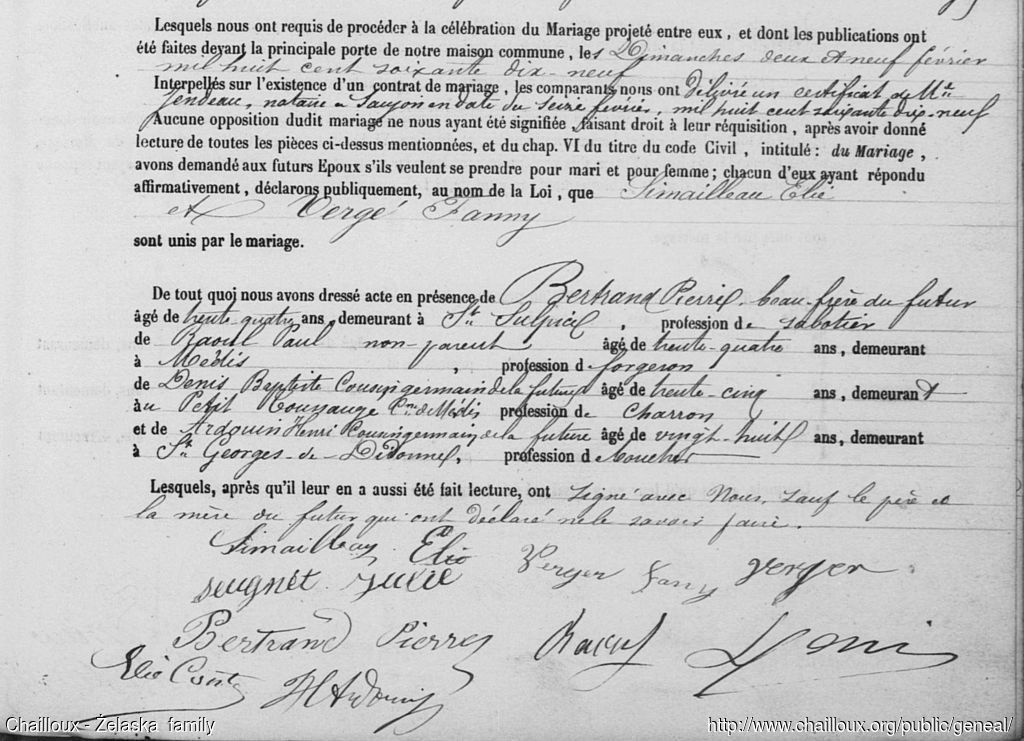 Lesquels nous ont requis de procéder à la célébration du Mariage projeté entre eux, et dont les publications ont
été faites devant la principale porte de notre maison commune, les Dimanches deux et neuf février
mil huit cent soixante dix-neuf
Interpellés sur l'existence d'un contrat de mariage, les comparants nous ont délivré un certificat de Mtre
Jendeau, notaire à Saujon en date du seize février, mil huit cent soixante dix-neuf
Aucune opposition dudit mariage ne nous ayant été signifiée, faisant droit à leur réquisition, après avoir donné
lecture de toutes les pièces ci-dessus mentionnées, et du chap. VI du titre du code Civil, intitulé: du Mariage,
avons demandé aux futurs Epoux s'ils veulent se prendre pour mari et pour femme; chacun d'eux ayant répondu
affirmativement, déclarons publiquement, au nom de la Loi, que Simailleau Elie
et Vergé Fanny
sont unis par le mariage.
De tout quoi nous avons dressé acte en présence de Bertrand Pierre, beau-frère du futur
âgé de trente-quatre ans, demeurant à St Sulpice, profession de sabotier
de Raoul Paul non-parent âgé de trente-quatre ans, demeurant
à Médis, profession de forgeron
de Denis Baptiste Cousin germain de la future âgé de trente-cinq ans, demeurant
à au Petit Toussauge Cne de Médis profession de Charron
et de Ardouin Henri Cousin germain de la future âgé de vingt-huit ans, demeurant
à St Georges-de-Didonne, profession d Boucher
Lesquels, après qu'il leur en a aussi été fait lecture, ont signé avec Nous, sauf le père et
la mère du futur qui ont déclaré ne le savoir faire.
Simailleau Elie Verger Fany Verger
Seugnet Julie
Bertrand Pierre Raoul
Elie HArdouin
Chailloux - Żelaska family http://www.chailloux.org/public/geneal/